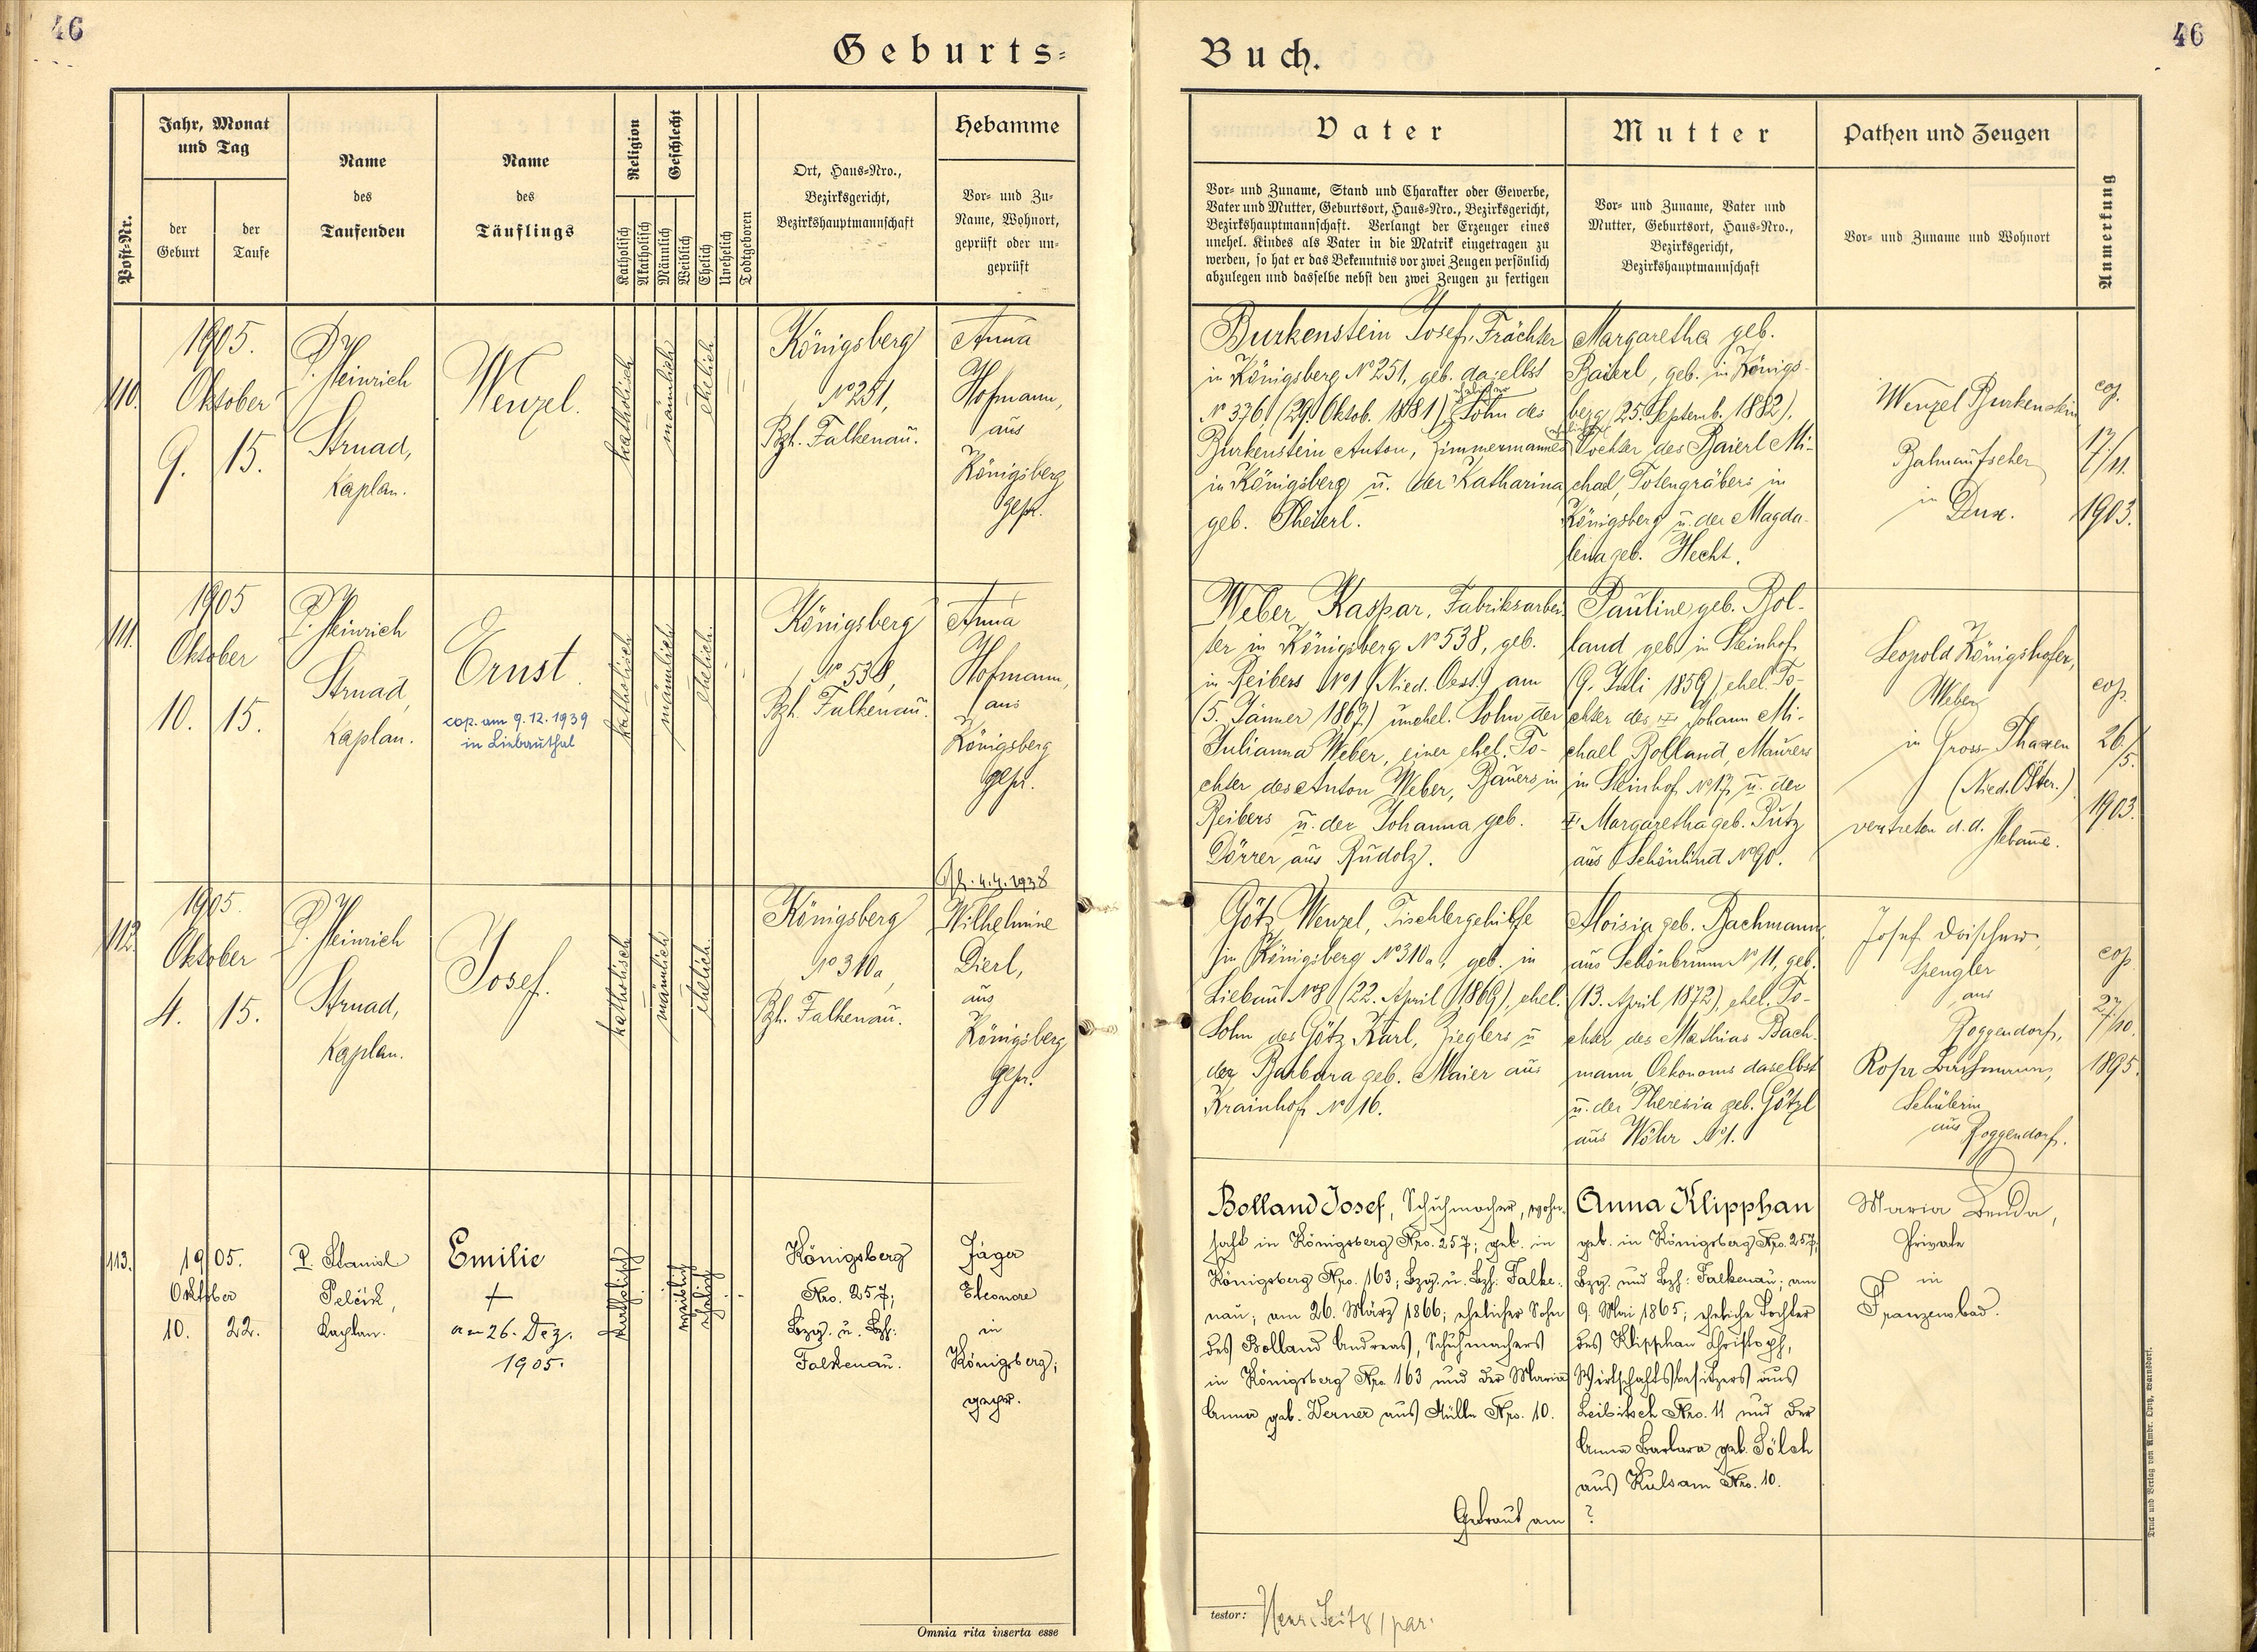 46
Geburts=
Post-Nr.
Jahr, Monat
und Tag
der
Geburt
der
Taufe
Name
des
Taufenden
Name
des
Täuflings
Religion
Katholisch
Akatholisch
Geschlecht
Männlich
Weiblich
Ehelich
Unehelich
Todtgeboren
Ort, Haus=Nro.,
Bezirksgericht,
Bezirkshauptmannschaft
Hebamme
Vor= und Zu=
Name, Wohnort,
geprüft oder un=
geprüft
110.
1905.
Oktober
9. 15.
P. Heinrich
Strnad,
Kaplan.
Wenzel.
katholisch
männlich
ehelich
Königsberg
No 251,
Bzh. Falkenau.
Anna
Hofmann,
aus
Königsberg
gepr.
111.
1905
Oktober
10. 15.
P. Heinrich
Strnad,
Kaplan.
Ernst.
cop. am 9.12.1939
in Liebauthal
katholisch
männlich
ehelich.
Königsberg
No 538,
Bzh. Falkenau.
Anna
Hofmann,
aus
Königsberg
gepr.
4.4.1938
112.
1905.
Oktober
4. 15.
P. Heinrich
Strnad,
Kaplan.
Josef.
katholisch
männlich
ehelich.
Königsberg
No 310a,
Bzh. Falkenau.
Wilhelmine
Dierl,
aus
Königsberg
gepr.
113.
1905.
Oktober
10. 22.
P. Stanisl
Pelčik,
Kaplan.
Emilie
+
am 26. Dez.
1905.
katholisch
weiblich
ehelich
Königsberg
Nro. 257;
Bzg. u. Bzh:
Falkenau.
Jäger
Eleonore
in
Königsberg;
gepr.
Omnia rita inserta esse
46
Buch.
Vater
Vor= und Zuname, Stand und Charakter oder Gewerbe,
Vater und Mutter, Geburtsort, Haus=Nro., Bezirksgericht,
Bezirkshauptmannschaft. Verlangt der Erzeuger eines
unehel. Kindes als Vater in die Matrik eingetragen zu
werden, so hat er das Bekenntnis vor zwei Zeugen persönlich
abzulegen und dasselbe nebst den zwei Zeugen zu fertigen
Mutter
Vor= und Zuname, Vater und
Mutter, Geburtsort, Haus=Nro.,
Bezirksgericht,
Bezirkshauptmannschaft
Pathen und Zeugen
Vor= und Zuname und Wohnort
Anmerkung
Burkenstein Josef, Frächter
in Königsberg No 251, geb. daselbst
No 376, (29. Oktob. 1881), ehelicher Sohn des
Burkenstein Anton, Zimmermannes
in Königsberg u. der Katharina
geb. Theierl.
Margaretha geb.
Baierl, geb. in Königs-
berg (25. Septemb. 1882),
eheliche Tochter des Baierl Mi-
chael, Totengräbers in
Königsberg u. der Magda-
lena geb. Hecht.
Wenzel Burkenstein
Bahnaufseher
in Dux.
cop.
17/11.
1903.
Weber Kaspar, Fabriksarbei-
ter in Königsberg No 538, geb.
in Reibers No 1 (Nied. Oest.) am
(5. Jänner 1867) unehel. Sohn der
Julianna Weber, einer ehel. To-
chter des Anton Weber, Bauers in
Reibers u. der Johanna geb.
Dörrer aus Rudolz.
Pauline geb. Bol-
land geb. in Steinhof
(9. Juli 1859) ehel. To-
chter des + Johann Mi-
chael Bolland, Maurers
in Steinhof No 17, u. der
+ Margaretha geb. Putz
aus Schönlind No 90.
Leopold Königshofer,
Weber
in Gross-Thaxen
(Nied. Öster.)
vertreten d. d. Hebamme.
cop.
26./5.
1903.
Götz Wenzel, Tischlergehülfe
in Königsberg No 310a, geb. in
Liebau No 8 (22. April 1869), ehel.
Sohn des Götz Karl, Zieglers u
der Barbara geb. Maier aus
Krainhof No 16.
Aloisia geb. Bachmann,
aus Schönbrunn No 11, geb.
(13. April 1872), ehel. To-
chter des Mathias Bach-
mann, Oekonoms daselbst
u. der Theresia geb. Götzl
aus Wöhr No 1.
Josef
Spengler
aus
Roggendorf,
Rosa Bachmann,
Schülerin
aus Roggendorf.
cop
27/10.
1895.
Bolland Josef, Schuhmacher, wohn-
haft in Königsberg Nro. 257; geb. in
Königsberg Nro. 163; Bzg. u. Bzh: Falke-
nau; am 26. März 1866; ehelicher Sohn
des Bolland Andreas, Schuhmachers
in Königsberg Nro. 163 und der Maria
Anna geb. Werner aus Mülln Nro. 10.
Anna Klipphan
geb. in Königsberg Nro. 257;
Bzg. und Bzh: Falkenau; am
9. Mai 1865; eheliche Tochter
des Klipphan Christoph,
Wirtschaftsbesitzers aus
Leibitsch Nro. 11 und der
Anna Barbara geb. Sölch
aus Kulsam Nro. 10.
Getraut am ?
Maria Benda,
Private
in
Franzensbad.
testor: Henr. Seitz, par.
Druck und Verlag von Ambr. Opitz, Warnsdorf.